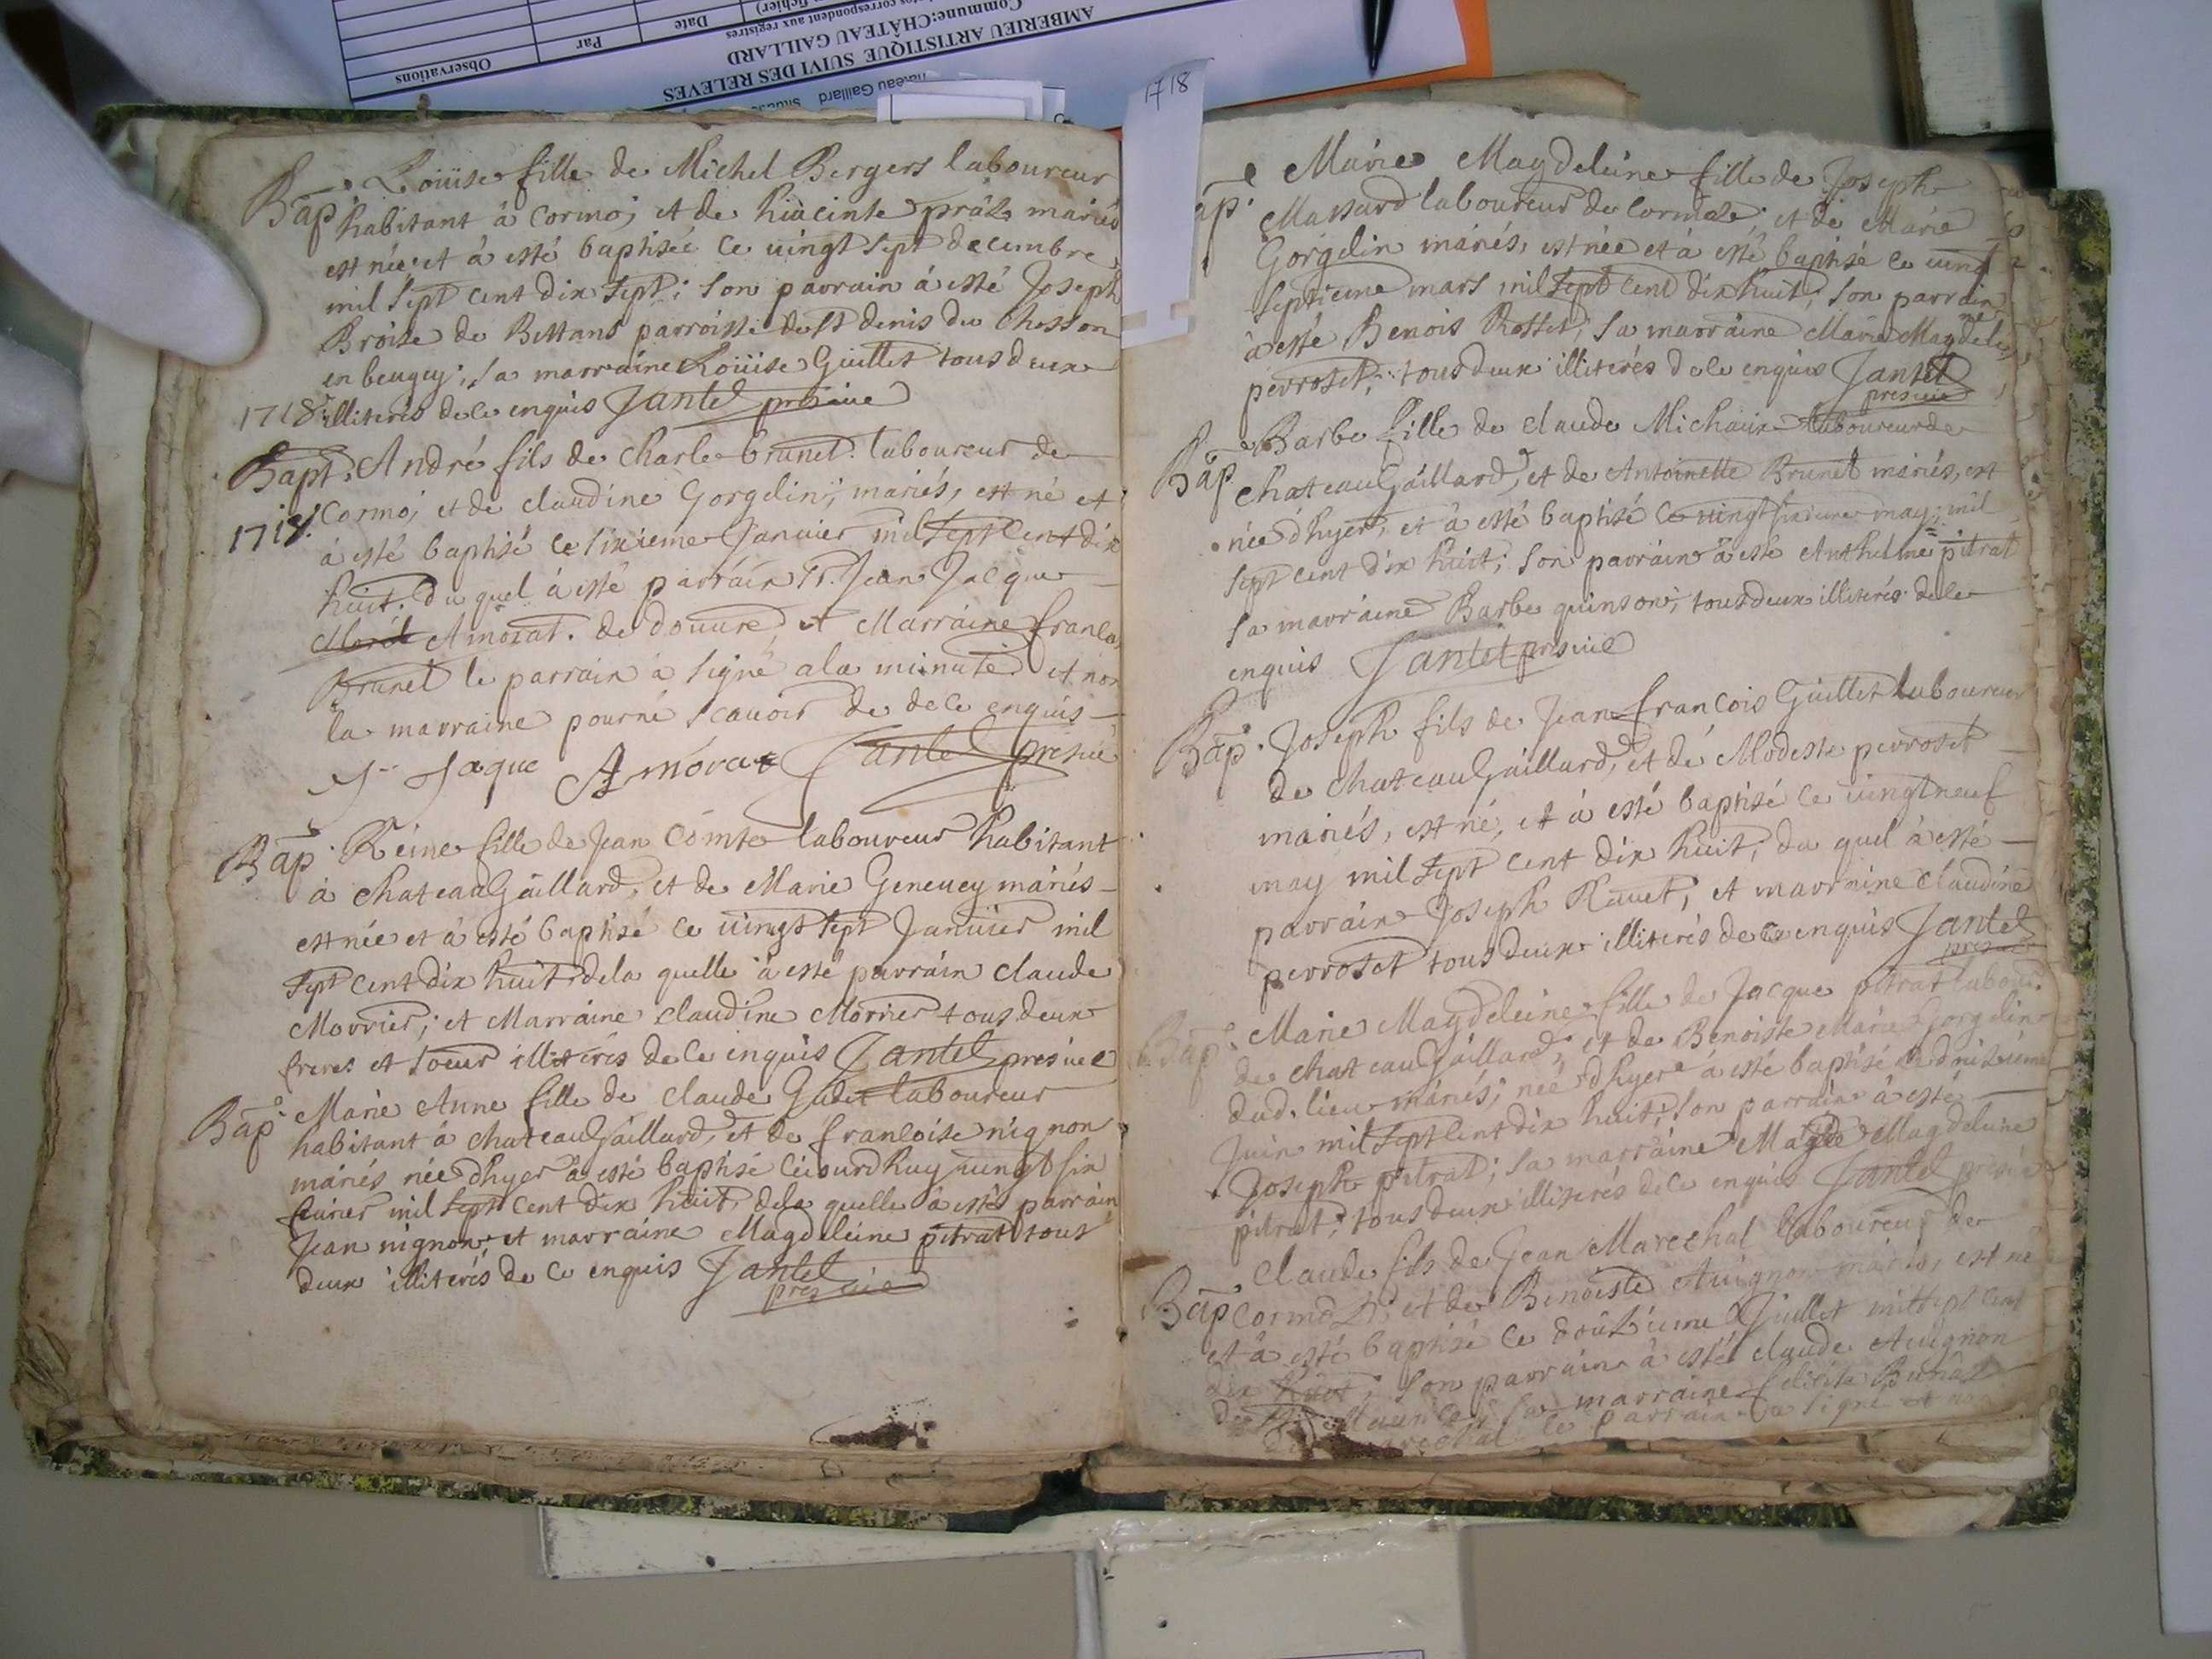 Observations
Par
Date
fichier)
correspondent aux registres
Commune:CHÂTEAU GAILLARD
AMBERIEU ARTISTIQUE SUIVI DES RELEVES
Gaillard
1718
Bap. Loüise fille de Michel Bergers laboureur
habitant à Cormoz et de hiacinte prâz mariés
est née et à esté baptisée ce uingt sept decembre
mil sept cent dix sept; son parrain à esté Joseph
Broise de Bettans parroisse de St denis du Chosson
en beugey; sa marraine Loüise Guillet tous deux
1718 illiterés de ce enquis Jantet
Bapt. André fils de Charle brunet laboureur de
1718. Cormoz et de claudine Gorgelin; mariés, est né et
à esté baptisé ce sixieme Januier mil sept cent dix
huit. du quel à esté parrain Sr. Jean Jacque
Amorat. de douure, et Marraine
Brunet le parrain à signé a la minute et non
la marraine pour ne scauoir de de ce enquis
Jaque Amorat Jantet
Bap. Reine fille de Jean Comte laboureur habitant
à chateauGaillard, et de Marie Geneuey mariés
est née et à esté baptisé ce uingt sept Januier mil
sept cent dix huit, de la quelle à esté parrain claude
Morrier; et Marraine Claudine Morrier tous deux
freres et soeur illiterés de ce enquis Jantet
Bap. Marie Anne fille de claude Gudet laboureur
habitant à chateauGaillard, et de francoise nignon
mariés née dhyer à esté baptisé uingt six
feurier mil sept cent dix huit, de la quelle à estés parrain
Jean nignon, et marraine Magdeleine pitrat tous
deux illiterés de ce enquis Jantet
Marie Magdeleine fille de Joseph
Massard laboureur de Cormoz; et de Marie
Gorgelin mariés, est née et à esté baptisé ce uingt
septieme mars mil sept cent dix huit; son parrain
à esté Benois Rosset; sa marraine Marie Magdeleine
perroset; tous deux illiterés de ce enquis Jantet
Bap. Barbe fille de claude Michaux laboureur de
chateauGaillard, et de Antoinette Brunet mariés, est
née dhyer, et à esté baptisé ce uingt sixieme may; mil
sept cent dix huit; son parrain à esté Anthelme pitrat
sa marraine Barbe quinson; tous deux illiterés de ce
enquis Jantet
Bap. Joseph fils de Jean francois Guillet laboureur
de chateauGaillard, et de Modeste perroset
mariés, est né, et à esté baptisé ce uingt neuf
may mil sept cent dix huit; du quel à esté
parrain Joseph Rauet; et marraine claudine
perroset tous deux illiterés de ce enquis Jantet
Bap. Marie Magdeleine fille de Jacque pitrat
de chateauGaillard; et de Benoiste Marie Gorgelin
dud. lieu mariés; née dhyer à esté baptisé
Juin mil sept cent dix huit; son parrain à esté
Joseph pitrat; sa marraine Magdeleine
pitrat; tous deux illiterés de ce enquis Jantet
Claude fils de Jean Marechal laboureur de
Bap Cormoz; et de Benoiste Auignon mariés, est né
et à esté baptisé ce doûzieme Juillet mil sept cent
dix huit; son parrain à esté claude Auignon
de St. Maurice; sa marraine
le parrain a signé et